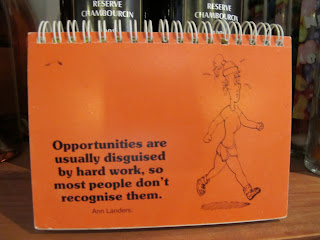 RESERVE
CHAMBOURCIN
RESERVE
CHAMBOURCIN
Opportunities are
usually disguised
by hard work, so
most people don't
recognise them.
Ann Landers.